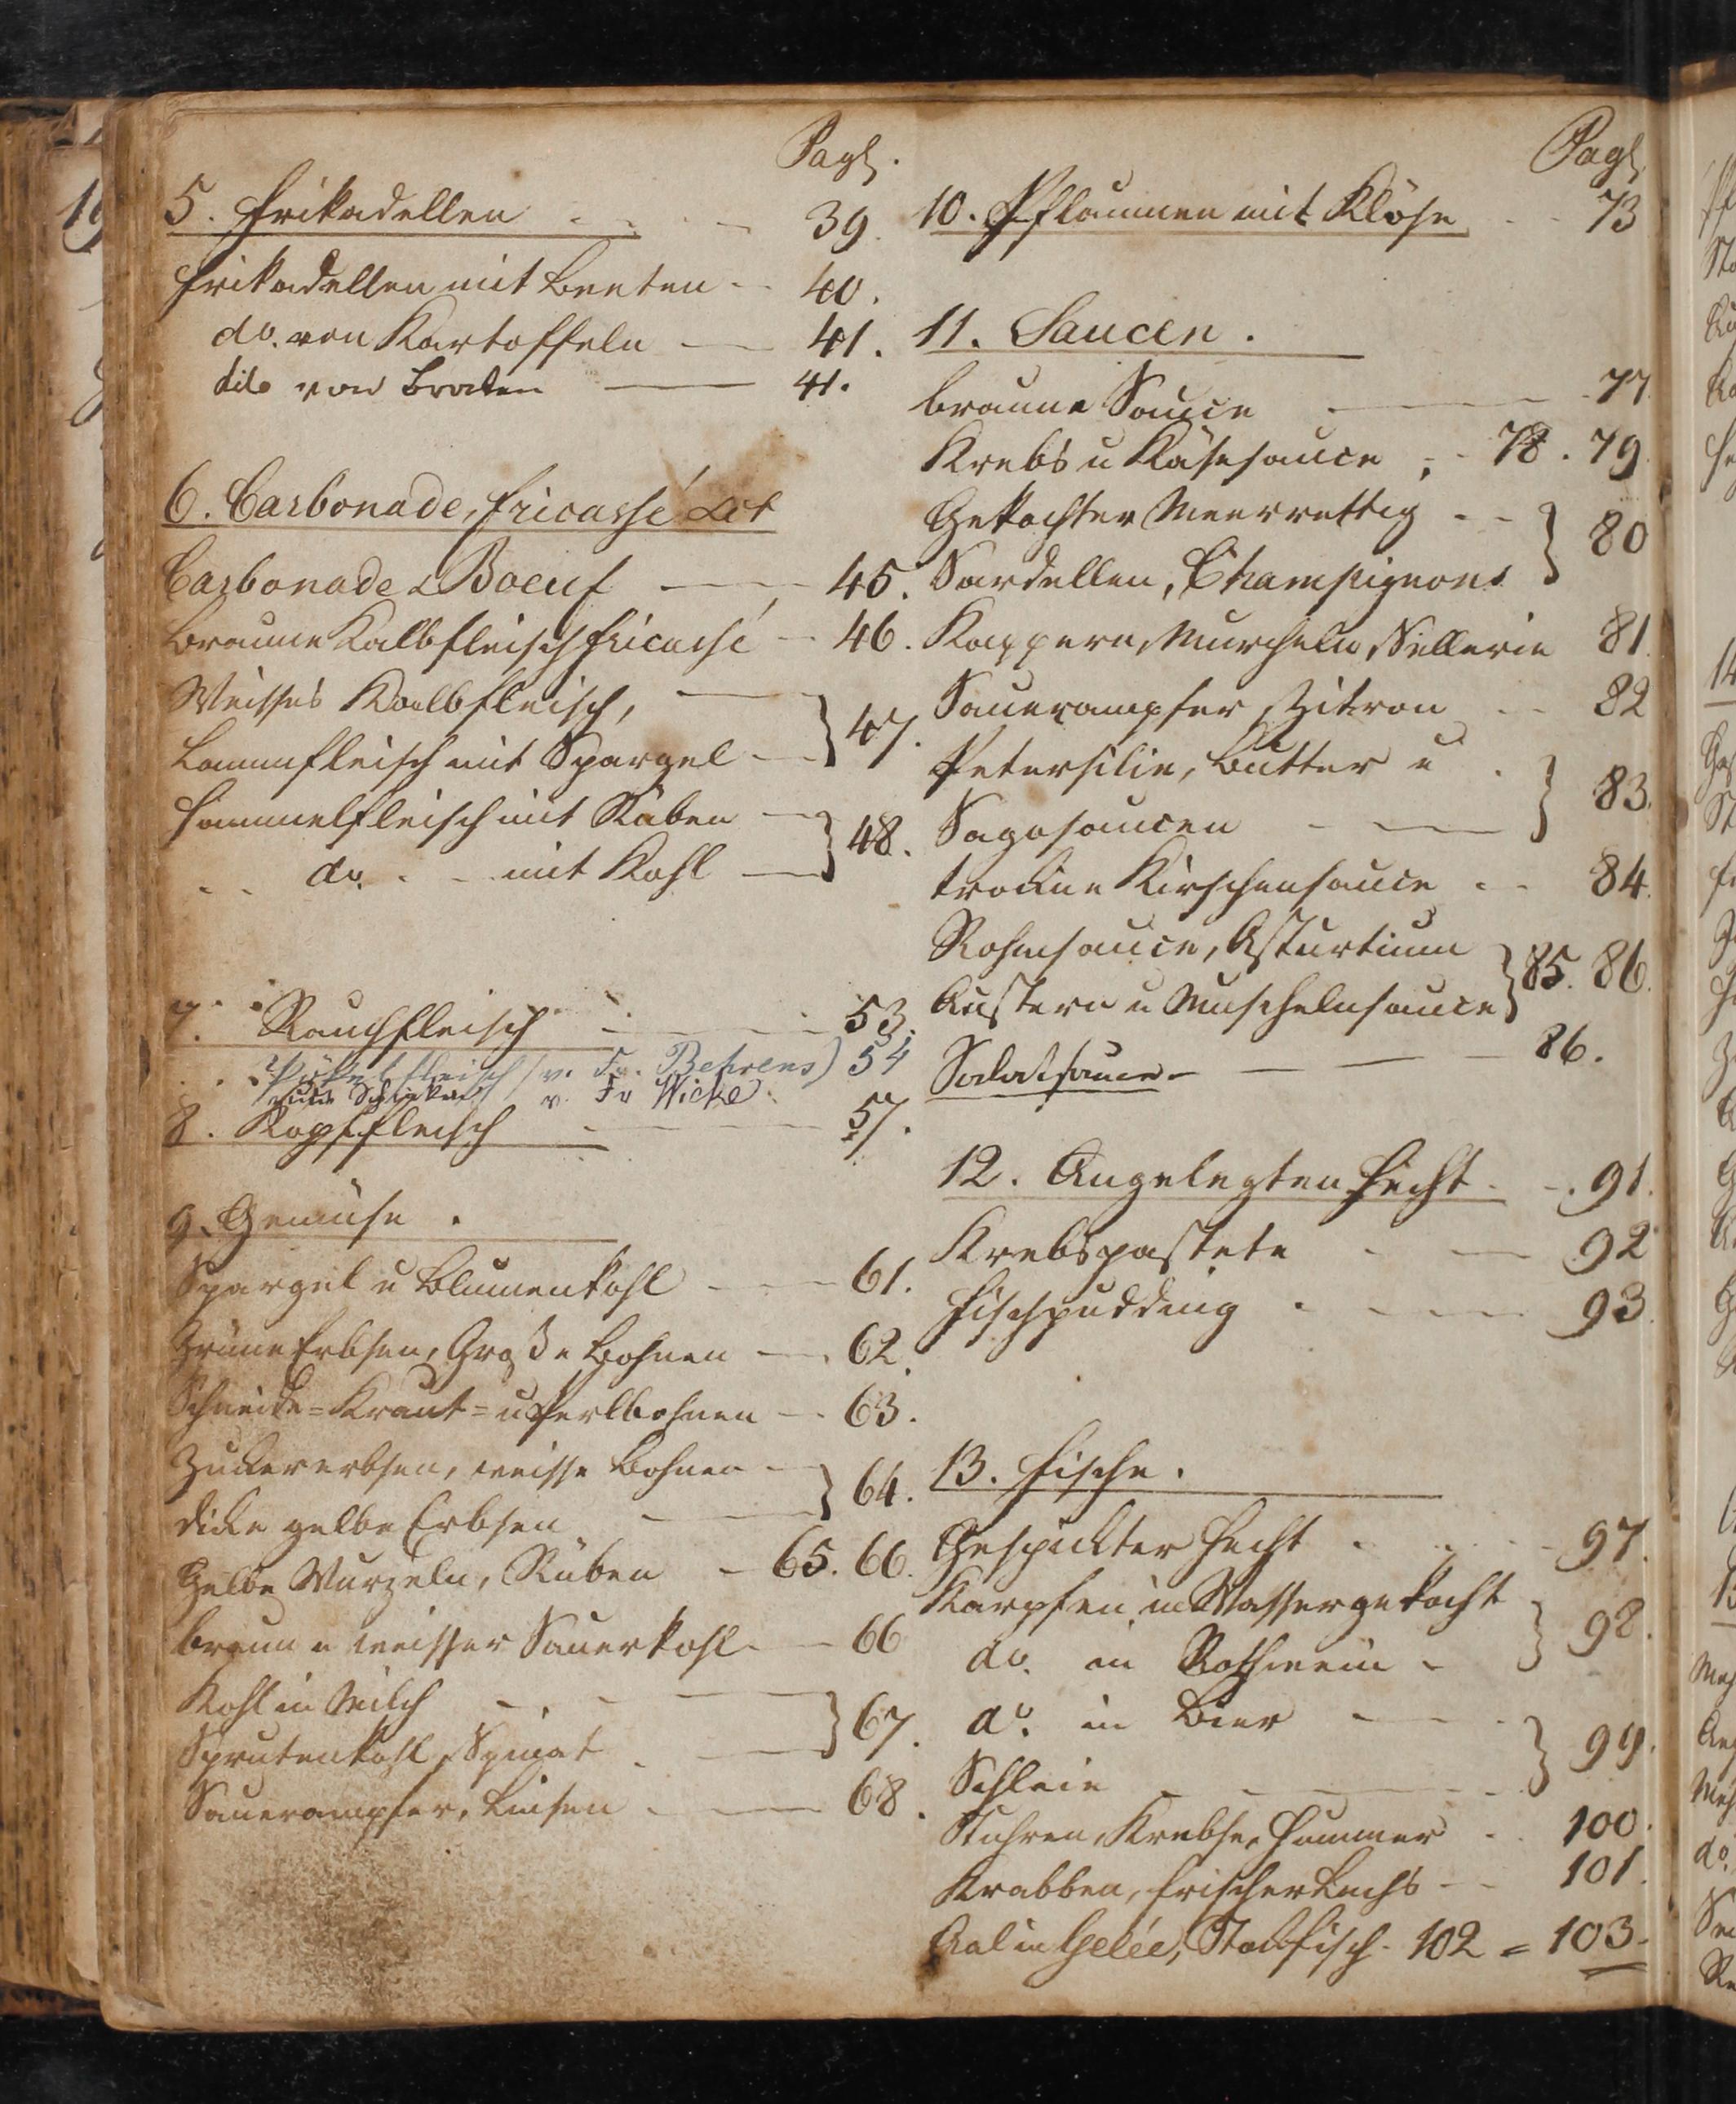 Pag.
5. Frikadellen 39.
Frikadellen mit Beeten 40.
do. von Kartoffeln 41.
dito von Braten 41.
6. Carbonade, Fricassé
Carbonade & Boeuf 45.
Braune Kalbfleisch fricassé 46.
Weisses Kalbfleisch, } 47.
Lammfleisch mit Spargel
Hammelfleisch mit Rüben } 48.
do. mit Kohl
7. Rauchfleisch 53.
Pökelfleisch (v. Fr. Behrens) 54
v. Fr Wicke
8. Kopffleisch 57.
9. Gemüse.
Spargel u Blumenkohl 61.
Grüne Erbsen, Große Bohnen 62.
Schneide=Kraut=u Perlbohnen 63.
Zuckererbsen, weisse Bohnen } 64.
dicke gelbe Erbsen
Gelbe Wurzeln, Rüben 65. 66.
braun u weisser Sauerkohl 66
Kohl in Milch } 67.
Sprutenkohl, Spinat
Sauerampfer, Linsen 68.
Pag.
10. Pflaumen mit Klöse 73
11. Saucen.
braune Sauce 77
Krebs u Käsesauce 78. 79.
Gekochter Meerrettig } 80
Sardellen, Champignons
Kappern, Murcheln, Sellerie 81.
Sauerampfer, Zitron 82
Petersilie, Butter u } 83.
Sagosaucen
trockne Kirschensauce 84.
Rohmsauce, Asturtium } 85. 86.
Austern u Muschelnsauce
Salatsauce 86.
12. Angelegten Hecht 91.
Krebspastete 92
Fischpudding 93
13. Fische.
Gespickter Hecht 97.
Karpfen in Wasser gekocht } 98.
do. in Rothwein
do. in Bier } 99.
Schleie
Stuhren, Krebse, Hummer 100.
Krabben, frischer Lachs 101.
Aal in Gelée, Stockfisch 102 = 103.